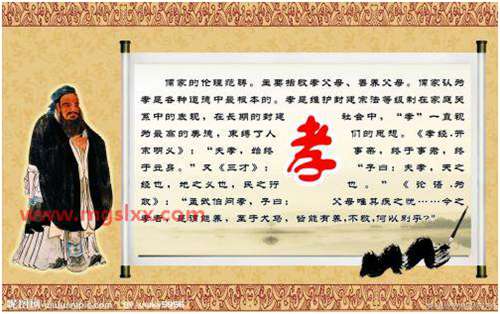 儒家的伦理范畴。主要指敬孝父母、善养父母。儒家认为
孝是各种道德中最根本的。孝是维护封建宗法等级制在家庭关
系中的表现，在长期的封建 社会中，“孝”一直视
为最高的美德，束缚了人 们的思想。《孝经·开
宗明义》：“夫孝，始终 事亲，终于事君，终
于立身。”又《三才》： “子曰：夫孝，天之
经也，地之义也，民之行 也。”《论语·为
政》：“孟武伯问孝，子曰： 父母唯其疾之忧……今之
孝者，是谓能养，至于犬马，皆能有养，不敬，何以别乎？”
孝
www.mgslxx.com
昵图网